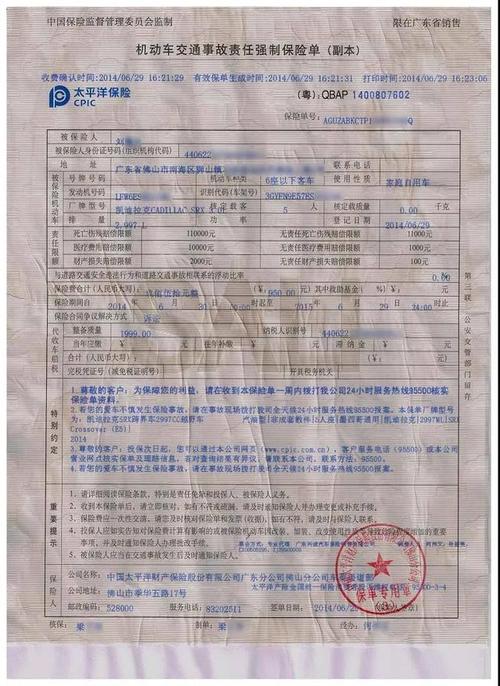 中国保险监督管理委员会监制 限在广东省销售
机动车交通事故责任强制保险单 (副本)
收费确认时间:2014/06/29 16:21:29 有效保单生成时间:2014/06/29 16:21:31 打印时间:2014/06/29 16:23:06
太平洋保险
CPIC
(粤): QBAP 1400807602
保险单号: AGUZABKCTP1 Q
被保险人
被保险人身份证号码(组织机构代码) 440622
地址 广东省佛山市南海区狮山镇 联系电话
被保险机动车
号牌号码 机动车种类 6座以下客车 使用性质 家庭自用车
发动机号码 LFW6ES 识别代码(车架号) 3GYFN9E57ES
厂牌型号 凯迪拉克CADILLAC SRX 3.0L 核定载客 5 人 核定载质量 0.00 千克
排量 2.997 L 功率 登记日期 2014/06/29
责任限额
死亡伤残赔偿限额 110000元 无责任死亡伤残赔偿限额 11000元
医疗费用赔偿限额 10000元 无责任医疗费用赔偿限额 1000元
财产损失赔偿限额 2000元 无责任财产损失赔偿限额 100元
与道路交通安全违法行为和道路交通事故相联系的浮动比率 0.00 %
保险费合计(人民币大写): 玖佰伍拾元整 (¥: 950.00 元) 其中救助基金( %)¥: 元
保险期间自 2014 年 6 月 30 日 00:00 时起至 2015 年 6 月 29 日 24:00 时止
保险合同争议解决方式 诉讼
代收车船税
整备质量 1999.00 纳税人识别号 440622
当年应缴 ¥: 元 往年补缴 ¥: 元 滞纳金 ¥: 元
合计(人民币大写): (¥: 元)
完税凭证号(减免税证明号) 开具税务机关
特别约定
1.尊敬的客户:为保障您的利益,请在收到本保险单一周内拨打我公司24小时服务热线95500核实
保险单资料.
2.若您的爱车不慎发生保险事故,请在事故现场拨打我司全天候24小时服务热线95500报案.本保单厂牌型号
为:凯迪拉克SRX跨界车2997CC越野车 汽油型[非成套散件]5人座[墨西哥通用]凯迪拉克[2997ML][SRX
Crossover (E5)]
2014
3.尊敬的客户:投保次日起,您可以通过本公司网页(www.cpic.com.cn),客户服务电话(95500)或本公司
营业网点核实保单及理赔信息.若对查询结果有异议,请联系本公司.联系方法:95500.
4.若您的爱车不慎发生保险事故,请在事故现场拨打我公司全天候24小时服务热线(95500)报案.
重要提示
1、请详细阅读保险条款,特别是责任免除和投保人、被保险人义务。
2、收到本保险单后,请立即核对,如有不符或疏漏,请及时通知保险人并办理变更或补充手续。
3、保险费应一次性交清,请您及时核对保险单和发票(收据),如有不符,请及时与保险人联系。
4、投保人应如实告知对保险费计算有影响的或被保险机动车因改装、加装、改变使用性质等导致危险程度增加的重要
事项,并及时通知保险人办理批改手续。
5、被保险人应当在交通事故发生后及时通知保险人。
保险人
公司名称: 中国太平洋财产保险股份有限公司广东分公司佛山分公司
公司地址: 佛山市季华五路17号
邮政编码: 528000 服务电话: 83202511 签单日期: 2014/06/29
保单专用章
核保: 梁 制单: 梁 经办: 何
第三联 公安交管部门留存